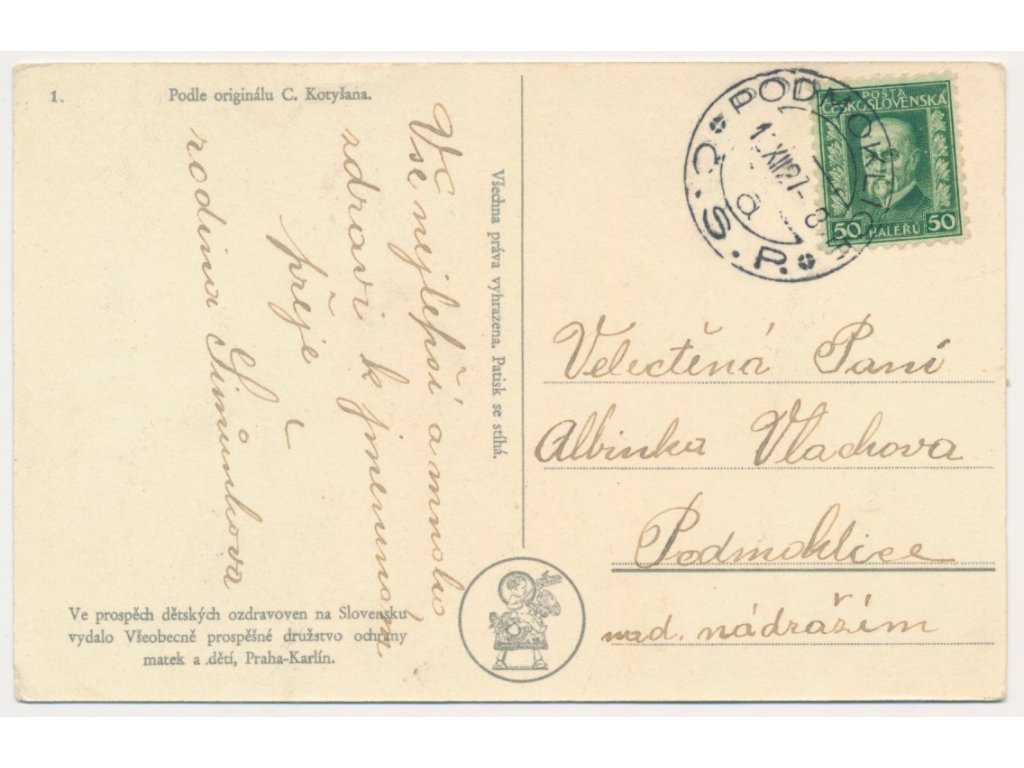 1.
Podle originálu C. Kotyšana.
Vše nejlepší a mnoho
zdraví k jmeninám
přeje
rodina Šimůnkova
Všechna práva vyhrazena. Patisk se stíhá.
PODMOKLICE
Č.S.P.
XII 27-8
a
POŠTA
ČESKOSLOVENSKÁ
50 HALÉŘŮ 50
Velectěná Paní
Albinka Vlachova
Podmoklice
nad. nádražím
Ve prospěch dětských ozdravoven na Slovensku
vydalo Všeobecně prospěšné družstvo ochrany
matek a dětí, Praha-Karlín.